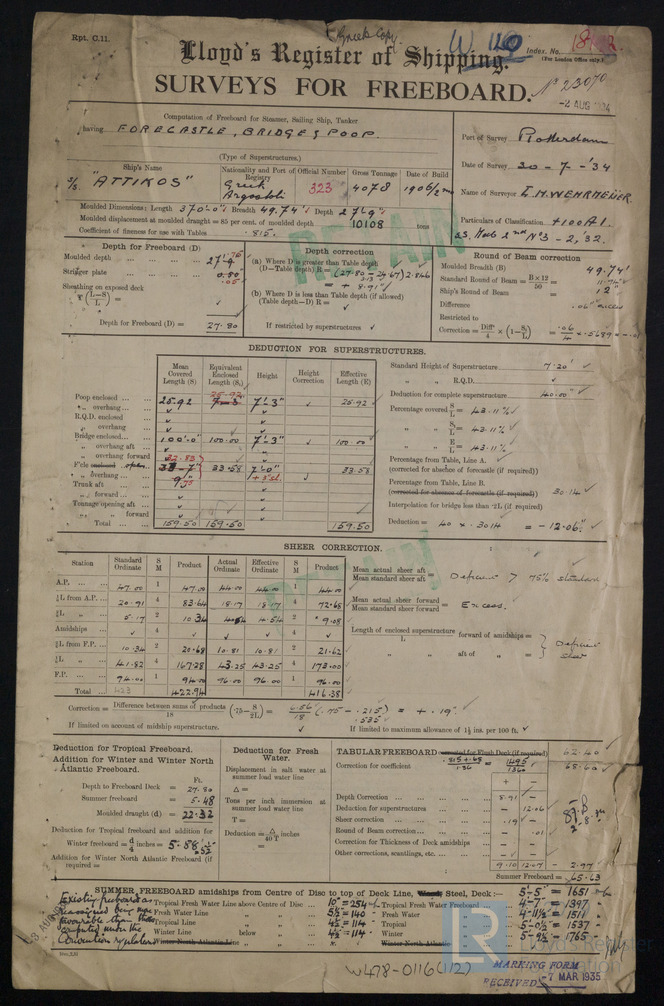 Rpt. C.11.
(Greek Copy)
W 120
Index. No.
(For London Office only.)
Lloyd's Register of Shipping.
No 23070
SURVEYS FOR FREEBOARD.
-2 AUG 1934
Computation of Freeboard for Steamer, Sailing Ship, Tanker
having FORECASTLE, BRIDGE & POOP.
(Type of Superstructures.)
Port of Survey Rotterdam
Date of Survey 30-7-'34
Name of Surveyor
Particulars of Classification +100A1.
Ship's Name
Nationality and Port of Registry
Official Number
Gross Tonnage
Date of Build
S/S "ATTIKOS"
Greek
Argostoli
323
4078
1906/2
Moulded Dimensions: Length 370'.0" Breadth 49.74' Depth 27'.9"
Moulded displacement at moulded draught = 85 per cent. of moulded depth 10108 tons
Coefficient of fineness for use with Tables .815.
RETAIN
Depth for Freeboard (D)
Moulded depth 27'.9"
Stringer plate
Sheathing on exposed deck
Depth for Freeboard (D) = 27.80
Depth correction
(a) Where D is greater than Table depth
(D—Table depth) R = (27.80 - 24.67) 2.846
= + 8.91"
(b) Where D is less than Table depth (if allowed)
(Table depth—D) R =
If restricted by superstructures
Round of Beam correction
Moulded Breadth (B) 49.74'
Standard Round of Beam = B×12/50 =
Ship's Round of Beam = 12"
Difference
Restricted to
Correction = Diff/4 × (1-S₁/L) = .06/4 × .5689 =
DEDUCTION FOR SUPERSTRUCTURES.
Mean Covered Length (S)
Equivalent Enclosed Length (S₁)
Height
Height Correction
Effective Length (E)
Poop enclosed 25.92 25.92 7'.3" 25.92
„ overhang
R.Q.D. enclosed
„ overhang
Bridge enclosed 100'.0" 100.00 7'.3" 100.00
„ overhang aft
„ overhang forward
F'cle enclosed 33.58 7'.0" 33.58
„ overhang
Trunk aft
„ forward
Tonnage opening aft
„ „ forward
Total 159.50 159.50 159.50
Standard Height of Superstructure 7.20'
„ „ R.Q.D.
Deduction for complete superstructure 40.00"
Percentage covered S/L = 43.11%
„ „ S₁/L = 43.11%
„ „ E/L = 43.11%
Percentage from Table, Line A.
(corrected for absence of forecastle (if required))
Percentage from Table, Line B.
(corrected for absence of forecastle (if required)) 30.14
Interpolation for bridge less than ·2L (if required)
Deduction = 40 × .3014 = -12.06"
SHEER CORRECTION.
RETAIN
Station
Standard Ordinate
S M
Product
Actual Ordinate
Effective Ordinate
S M
Product
A.P. 47.00 1 47.00 44.00 44.00 1 44.00
⅙L from A.P. 20.91 4 83.64 18.17 18.17 4 72.68
⅓L „ 5.17 2 10.34 4.54 4.54 2 9.08
Amidships 4 4
⅓L from F.P. 10.34 2 20.68 10.81 10.81 2 21.62
⅙L „ 41.82 4 167.28 43.25 43.25 4 173.00
F.P. 94.00 1 94.00 96.00 96.00 1 96.00
Total 423 422.94 416.38
Mean actual sheer aft / Mean standard sheer aft = Deficient > 75% standard
Mean actual sheer forward / Mean standard sheer forward = Excess.
Length of enclosed superstructure / L forward of amidships =
„ „ aft of „ =
Deficient sheer
Correction = Difference between sums of products/18 (·75 - S/2L) = 6.56/18 (.75 - .215) = + .19"
.535
If limited on account of midship superstructure.
If limited to maximum allowance of 1½ ins. per 100 ft.
Deduction for Tropical Freeboard.
Addition for Winter and Winter North Atlantic Freeboard.
Ft.
Depth to Freeboard Deck = 27.80
Summer freeboard = 5.48
Moulded draught (d) = 22.32
Deduction for Tropical freeboard and addition for
Winter freeboard = d/4 inches = 5.58
Addition for Winter North Atlantic Freeboard (if required =
Deduction for Fresh Water.
Displacement in salt water at summer load water line
Δ =
Tons per inch immersion at summer load water line
T =
Deduction = Δ/40T inches
=
TABULAR FREEBOARD corrected for Flush Deck (if required) 62.40
Correction for coefficient .815+.68/1.36 = 1.495/1.360 68.60
+ -
Depth Correction 8.91 -
Deduction for superstructures - 12.06
Sheer correction .19 -
Round of Beam correction - .01
Correction for Thickness of Deck amidships - -
Other corrections, scantlings, etc. - -
9.10 12.07 - 2.97
Summer Freeboard = 65.63
SUMMER FREEBOARD amidships from Centre of Disc to top of Deck Line, Wood, Steel, Deck:— 5-5" = 1651
Tropical Fresh Water Line above Centre of Disc 10" = 254
Fresh Water Line „ 5½ = 140
Tropical Line „ 4½ = 114
Winter Line below „ 4½ = 114
Winter North Atlantic Line „
Tropical Fresh Water Freeboard 4-7" = 1397
Fresh Water „ 4-11½ = 1511
Tropical „ 5-0½ = 1537
Winter „ 5-9½ = 1765
Winter North Atlantic „
Existing freeboard as
reassigned being more
favourable than that
computed under the
Convention regulations
Lloyd's Register
Foundation
LR
MARKING FORM
RECEIVED -7 MAR 1935
W478-0116(1/2)